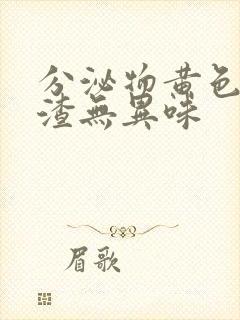 分泌物黄色
渣無異味
眉歌